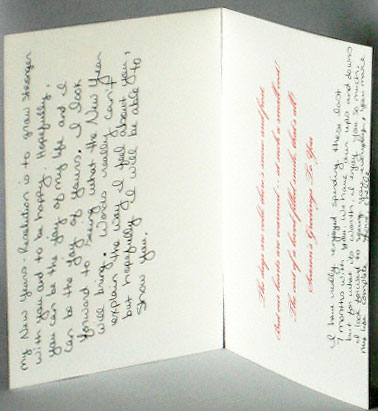 My New Years - Resolution is to grow stronger
with you and to be happy. Hopefully,
you can be the joy of my life and I
can be the joy of yours. I look
forward to seeing what the New Year
will bring. Words really can't
explain the way I feel about you,
but hopefully I will be able to
show you.
The days are cold, there's snow and frost
And our hearts are warmed - at such a small cost
The cost of a heart filled with that's all
Season's Greetings To You
I have really enjoyed spending these last
7 months with you. We have our ups and downs
but for what its worth I enjoy you so much.
I look forward to seeing you everyday. You make
my life complete. Love,